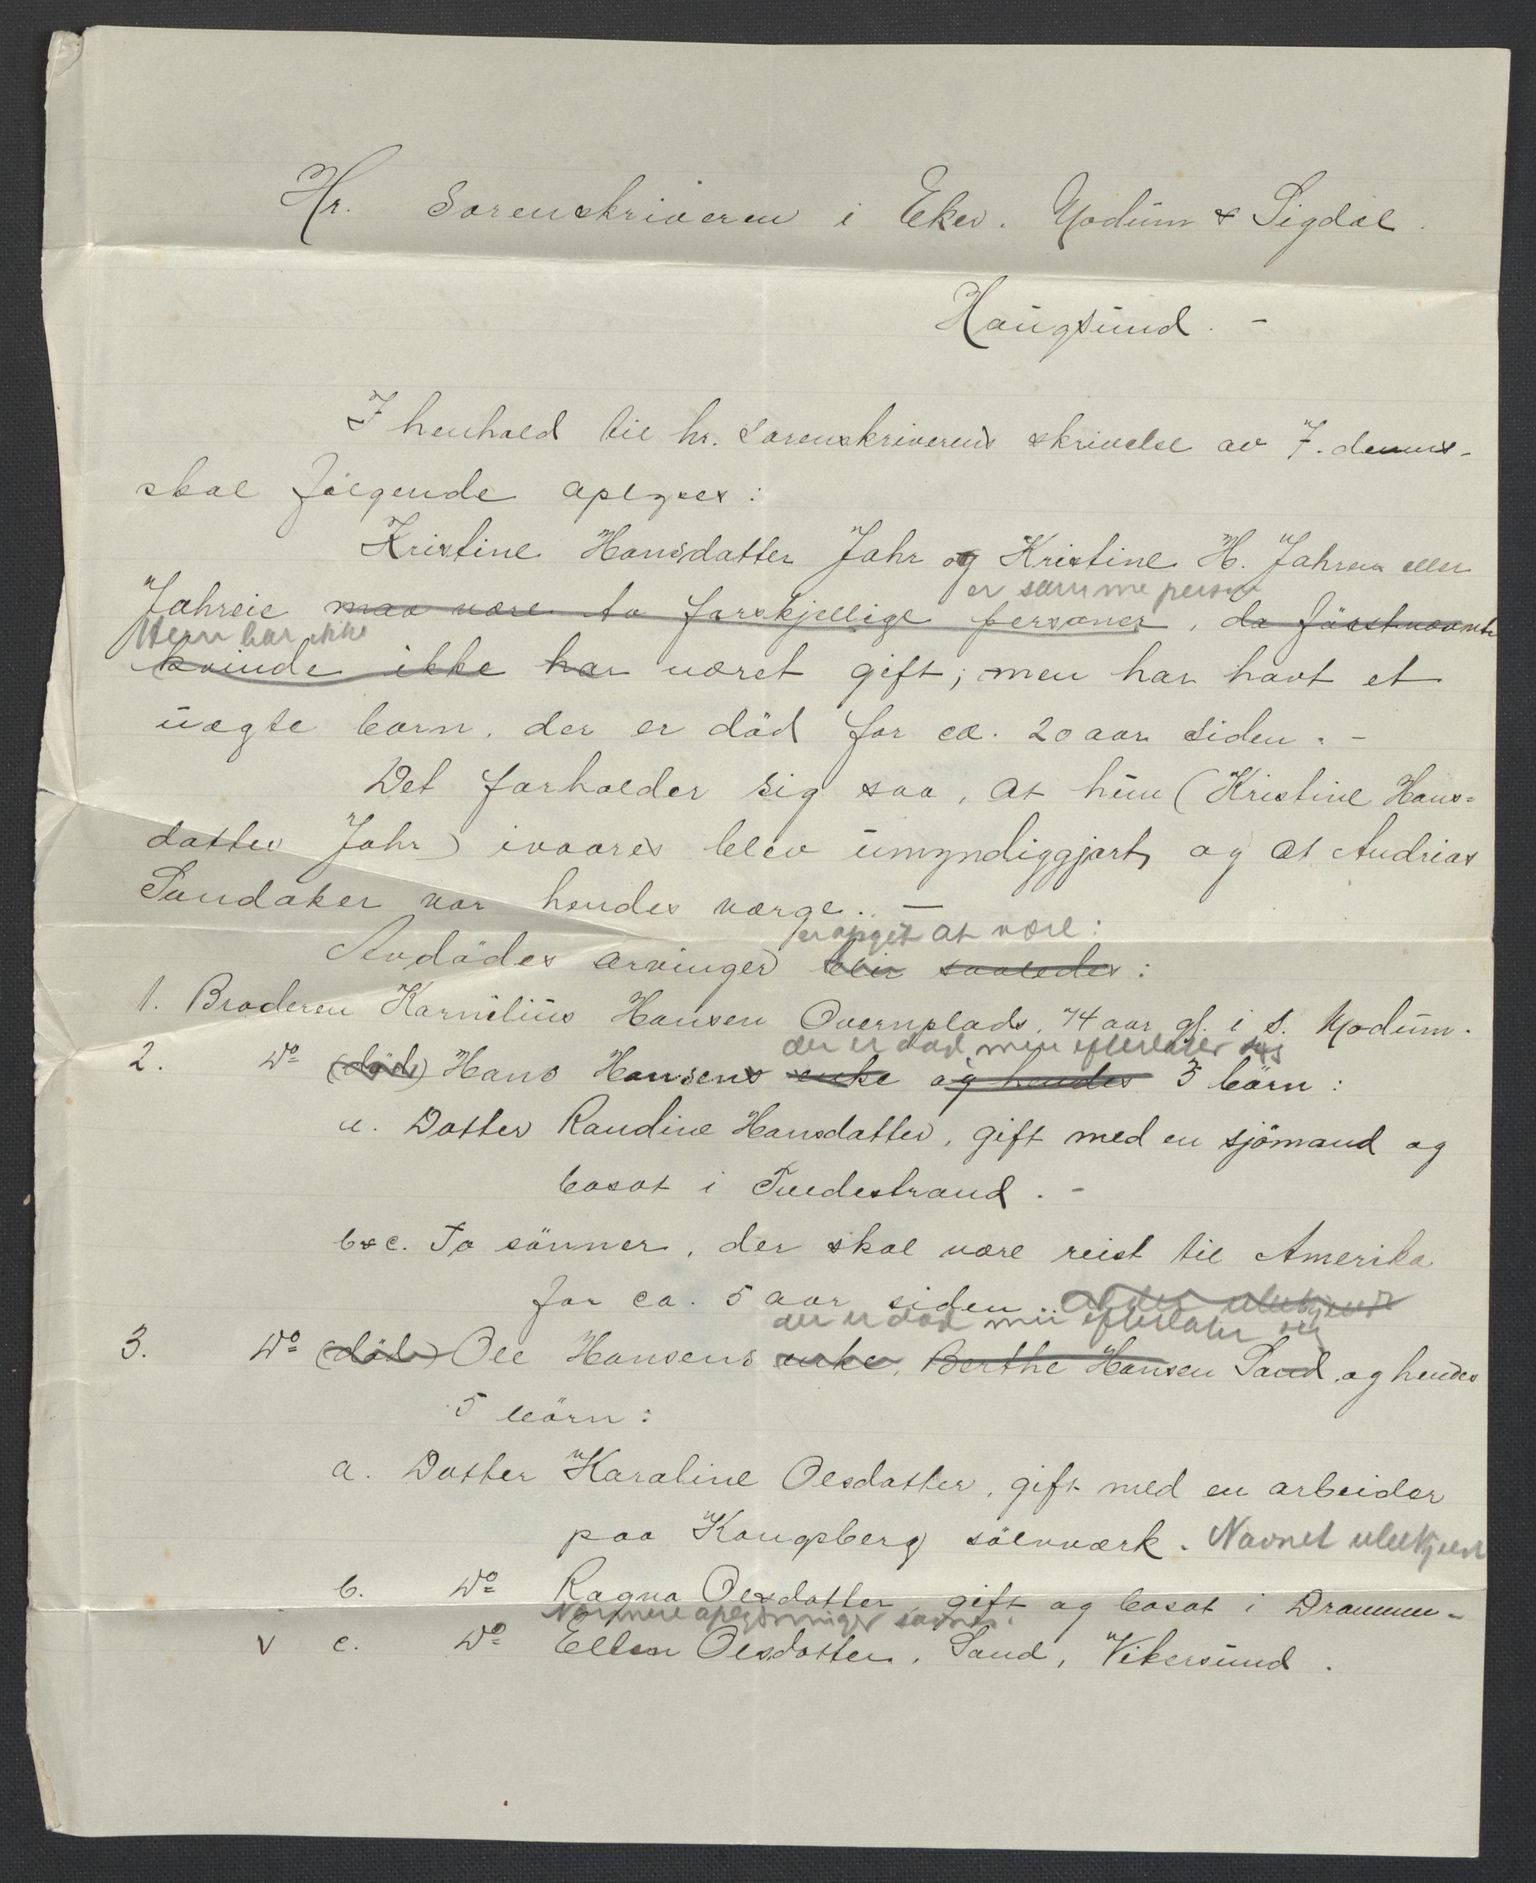 Hr. Sorenskriveren i Eker. Modum & Sigdal.
Haugsund. -
I henhold til hr. sorenskriverens skrivelse av 7. dennes.
skal følgende oplyses:
Kristine Hansdatter Jahr og Kristine H. Jahren eller
er samme person
Jahreie maa være to forskjellige personer, da først nævnte
Hun har ikke
kvinde ikke har været gift; men har havt et
uægte barn, der er död for ca. 20 aar siden. -
Det forholder sig saa, at hun (Kristine Hans-
datter Jahr) ivaares blev umyndiggjort, og at Andreas
Sandaker var hendes værge.. -
er opgit at være:
Avdödes arvinger blir saaledes:
1. Broderen Kornelius Hansen Overnplads, 74 aar gl. i S. Modum.
der er död men efterlater sig
2. Do (död) Hans Hansens enke og hendes 3 börn:
a. Datter Randine Hansdatter, gift med en sjömand og
bosat i Tvedestrand. -
b & c. To sönner, der skal være reist til Amerika
for ca. 5 aar siden.. alder ubekjendt
der er död men efterlater sig
3. Do (död) Ole Hansens enke, Berthe Hansen Sand, og hendes
5 börn:
a. Datter Karoline Olsdatter, gift med en arbeider
paa Kongsberg sölvværk. Navnet ubekjendt
b. Do Ragna Olsdatter, gift og bosat i Drammen -
Nærmere oplysninger savnes.
v c. Do Ellen Olsdatter, Sand, Vikersund.